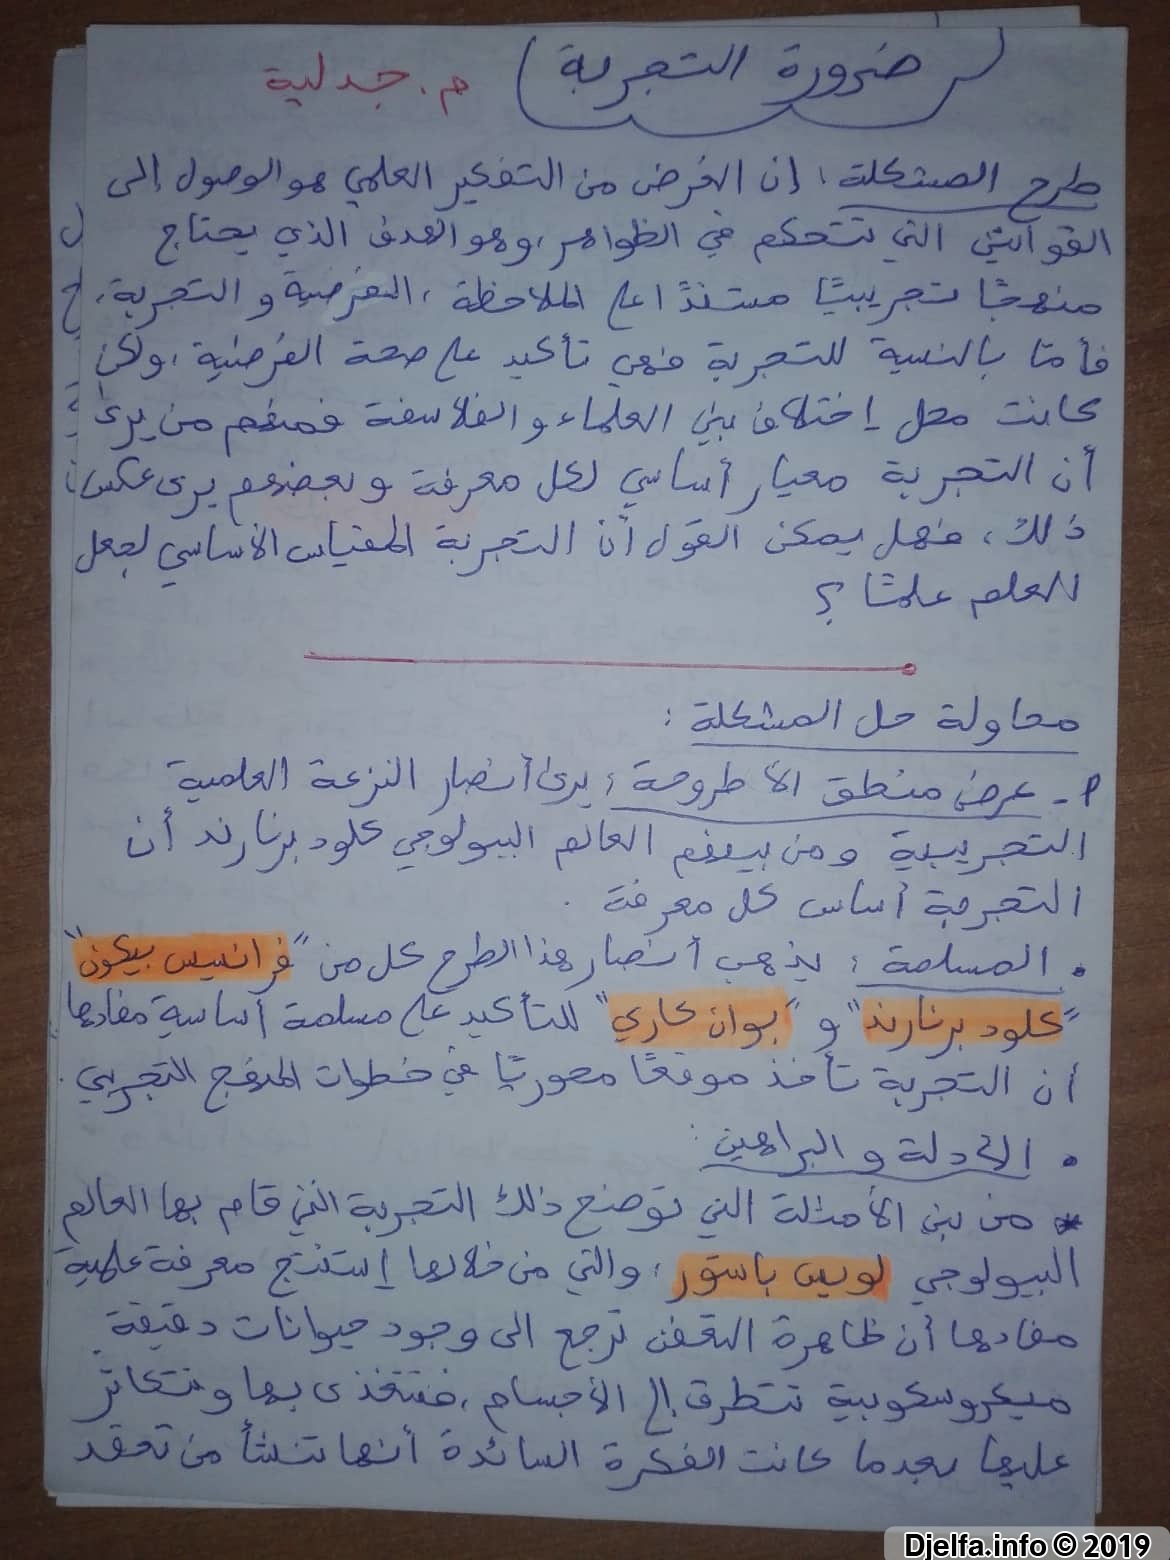 ضرورة التجربة م. جدلية
طرح المشكلة : إن الغرض من التفكير العلمي هو الوصول إلى
القوانين التي تتحكم في الظواهر، وهو الهدف الذي يحتاج
منهجًا تجريبيًا مستندًا على الملاحظة ، الفرضية و التجربة،
فأما بالنسبة للتجربة فهي تأكيد على صحة الفرضية ، ولكن
كانت محل إختلاف بين العلماء و الفلاسفة فمنهم من يرى
أن التجربة معيار أساسي لكل معرفة و بعضهم يرى عكس
ذلك ، فهل يمكن القول أن التجربة المقياس الأساسي لجعل
العلم علمًا ؟
محاولة حل المشكلة :
P - عرض منطق الأطروحة : يرى أنصار النزعة العلمية
التجريبية ومن بينهم العالم البيولوجي كلود برنارند أن
التجربة أساس كل معرفة .
• المسلمة : يذهب أنصار هذا الطرح كل من "فرانسيس بيكون"
"كلود برنارند" و "بوان كاري" للتأكيد على مسلمة أساسية مفادها
أن التجربة تأخذ موقعًا محوريًا في خطوات المنهج التجريبي .
• الأدلة و البراهين :
* من بين الأمثلة التي توضح ذلك التجربة التي قام بها العالم
البيولوجي لويس باستور ، والتي من خلالها إستنتج معرفة علمية
مفادها أن ظاهرة التعفن ترجع الى وجود حيوانات دقيقة
ميكروسكوبية تتطرق إلى الأجسام ، فتتغذى بها وتتكاثر
عليها بعدما كانت الفكرة السائدة أنها تنشأ من تعقد
Djelfa.info © 2019